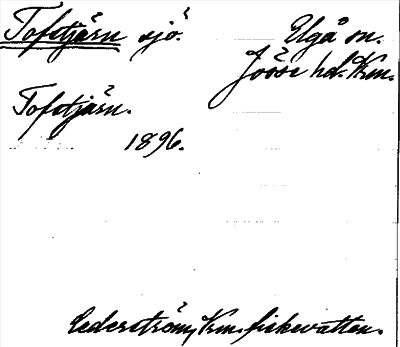 Toftjärn sjö.
Elgå sn.
Jösse hd. Vrm.
Toftjärn.
1896.
Cederström, Vrm. fiskevatten.